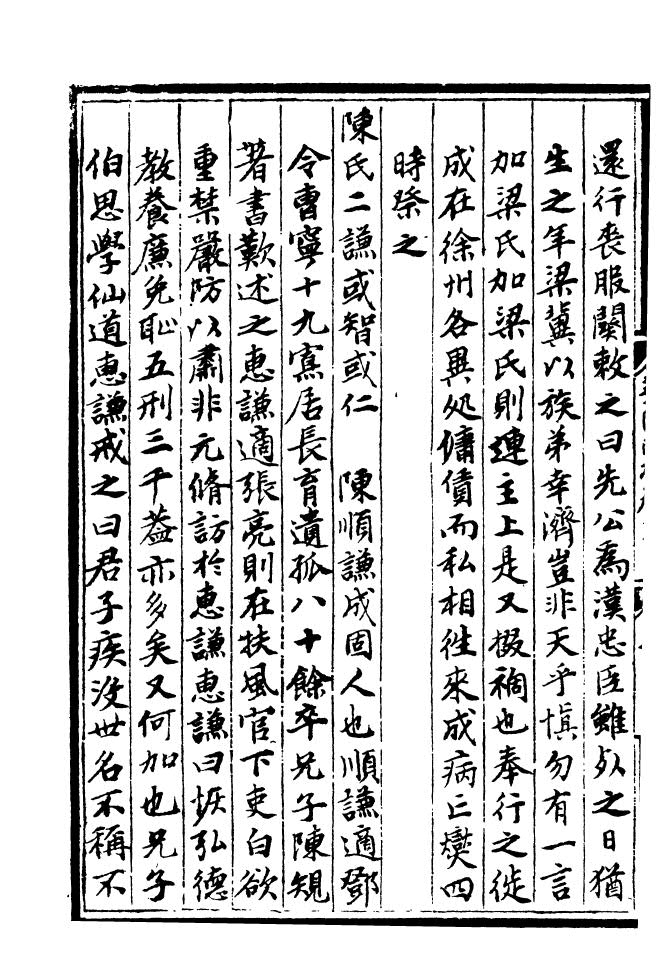 還行喪服闋敕之曰先公為漢忠臣雖死之日猶
生之年梁冀以族弟幸濟豈非天乎愼勿有一言
加梁氏加梁氏則連主上是又掇禍也奉行之徙
成在徐州各異処傭債而私相徃來成病亡爕四
時祭之
陳氏二謙或智或仁　陳順謙成固人也順謙適鄧
令曹寧十九寡居長育遺孤八十餘卒兄子陳規
著書歎述之惠謙適張亮則在扶風官下吏白欲
重禁嚴防以肅非元脩訪於惠謙惠謙曰恢弘德
教養廉免恥五刑三千葢亦多矣又何加也兄子
伯思學仙道惠謙戒之曰君子疾没世名不稱不